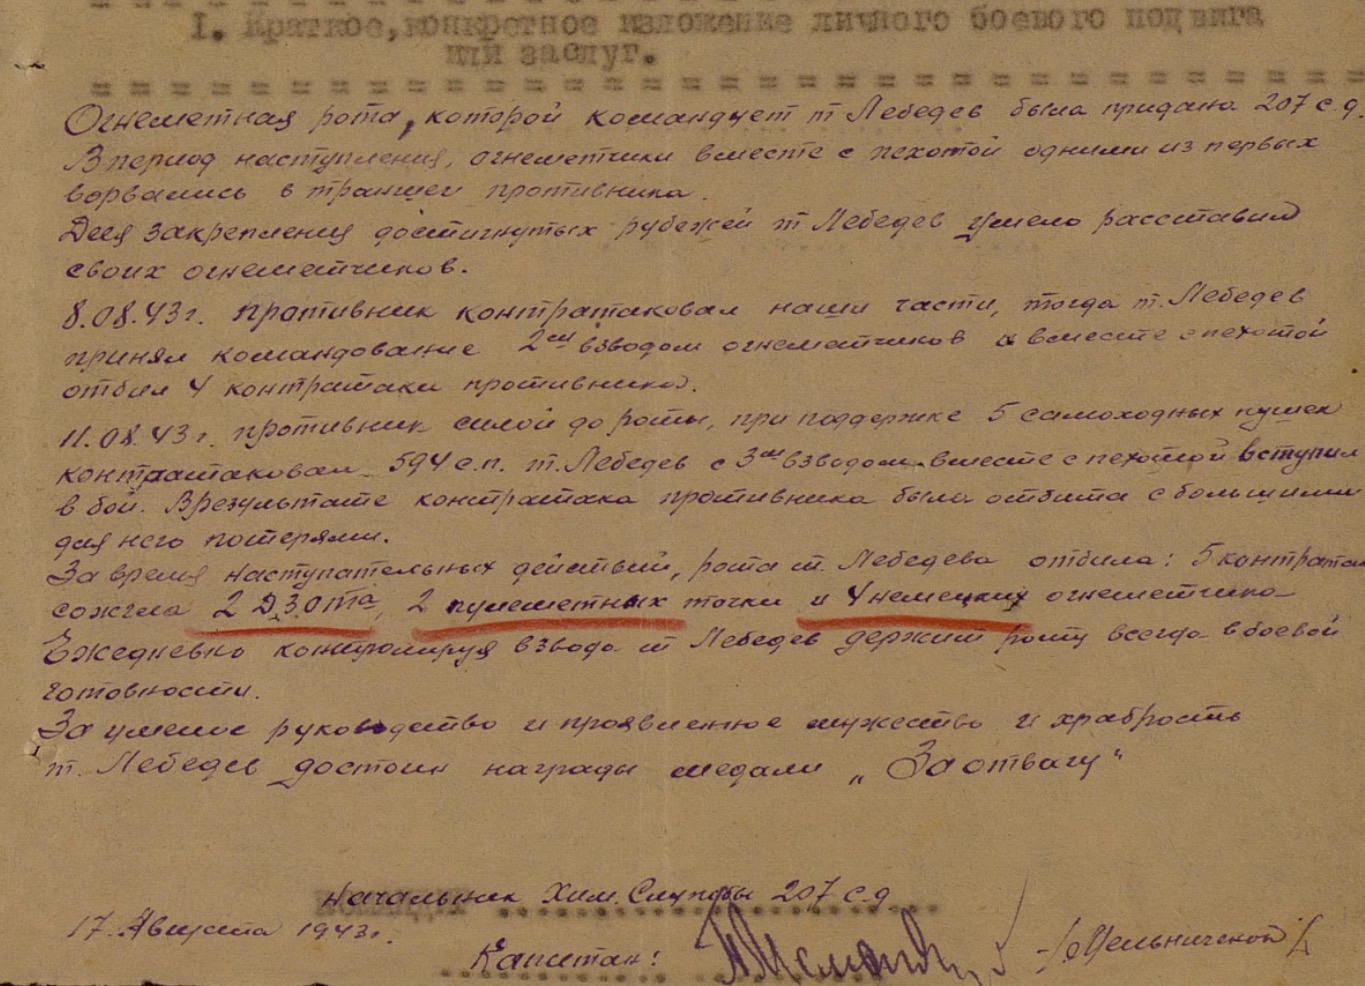 I. Краткое, конкретное изложение личного боевого подвига
или заслуг.
Огнеметная рота, которой командует т Лебедев была придана 207 с.д.
В период наступления, огнеметчики вместе с пехотой одними из первых
ворвались в траншеи противника.
Для закрепления достигнутых рубежей т Лебедев умело расставил
своих огнеметчиков.
8.08.43г. противник контратаковал наши части, тогда т. Лебедев
принял командование 2ым взводом огнеметчиков и вместе с пехотой
отбил 4 контратаки противника.
11.08.43г. противник силой до роты, при поддержке 5 самоходных пушек
контратаковал 594 с.п. т. Лебедев с 3им взводом вместе с пехотой вступил
в бой. В результате контратака противника была отбита с большими
для него потерями.
За время наступательных действий, рота т. Лебедева отбила: 5 контратак
сожгла 2 ДЗОТа, 2 пулеметных точки и 4 немецких огнеметчика
Ежедневно контролируя взвода т Лебедев держит роту всегда в боевой
готовности.
За умелое руководство и проявленное мужество и храбрость
т. Лебедев достоин награды медали „За отвагу"
Начальник Хим. Службы 207 с.д
17. Августа 1943г.
Капитан: